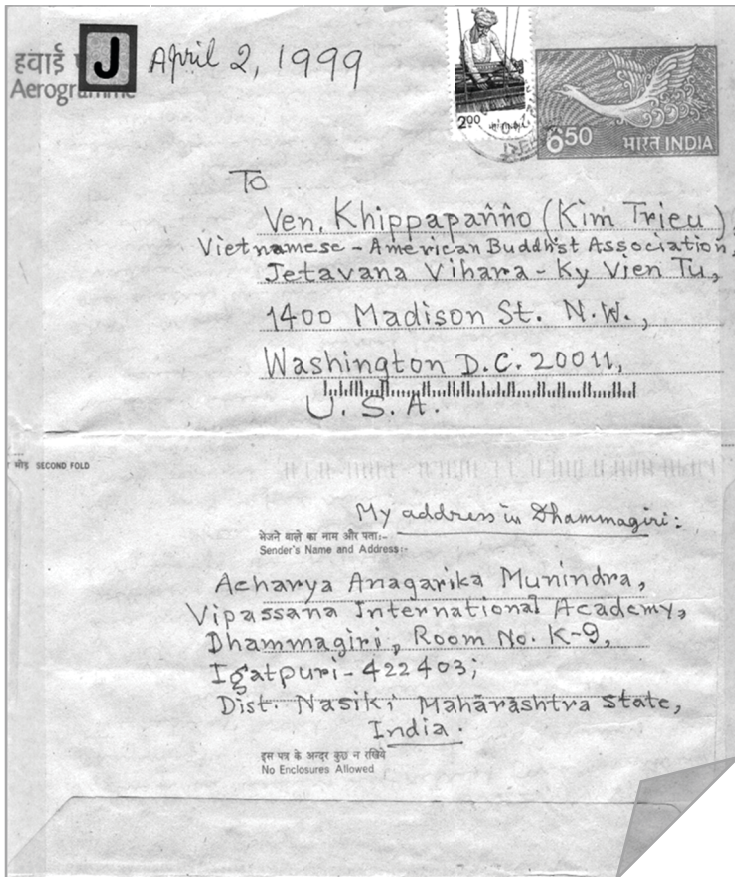 हवाई
Aerogramme
J
April 2, 1999
2.00
650
भारत INDIA
To
Ven. Khippapañño (Kim Trieu),
Vietnamese - American Buddhist Association,
Jetavana Vihara - Ky Vien Tu,
1400 Madison St. N.W.,
Washington D.C. 20011,
U.S.A.
मोड़ SECOND FOLD
My address in Dhammagiri:
भेजने वाले का नाम और पता:-
Sender's Name and Address:-
Acharya Anagarika Munindra,
Vipassana International Academy,
Dhammagiri, Room No. K-9,
Igatpuri - 422403;
Dist. Nasik; Maharashtra state,
India.
इस पत्र के अन्दर कुछ न रखिये
No Enclosures Allowed